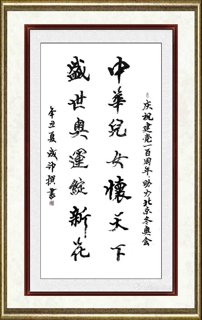 庆祝建党一百周年暨北京冬奥会
中華兒女懷天下
盛世奥運綻新花
辛丑夏成沛撰書